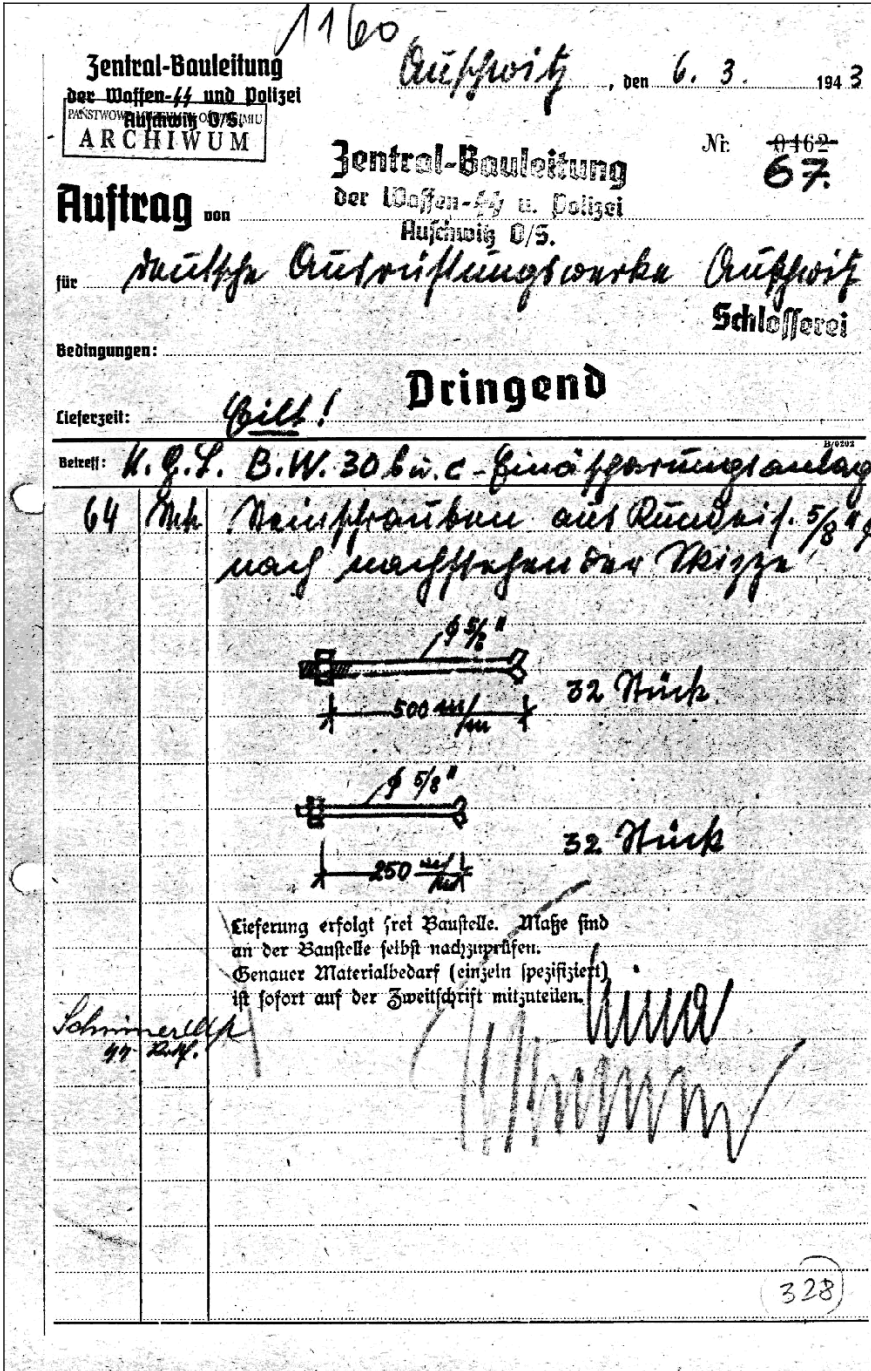 1160
Zentral-Bauleitung
der Waffen-SS und Polizei
Auschwitz O/S.
ARCHIWUM
Auschwitz, den 6. 3. 1943
Nr. 0462
67.
Auftrag von
Zentral-Bauleitung
der Waffen-SS u. Polizei
Auschwitz O/S.
für Deutsche Ausrüstungswerke Auschwitz
Schlosserei
Bedingungen:
Dringend
Lieferzeit: Eilt!
B/0202
Betreff: K.G.L. B.W. 30 b u. c - Einäscherungsanlag
64 Stck Steinschrauben aus Rundeis. 5/8" φ
nach nachstehender Skizze
φ 5/8"
500 m/m
32 Stück.
φ 5/8"
250 m/m
32 Stück
Lieferung erfolgt frei Baustelle. Maße sind
an der Baustelle selbst nachzuprüfen.
Genauer Materialbedarf (einzeln spezifiziert)
ist sofort auf der Zweitschrift mitzuteilen.
328